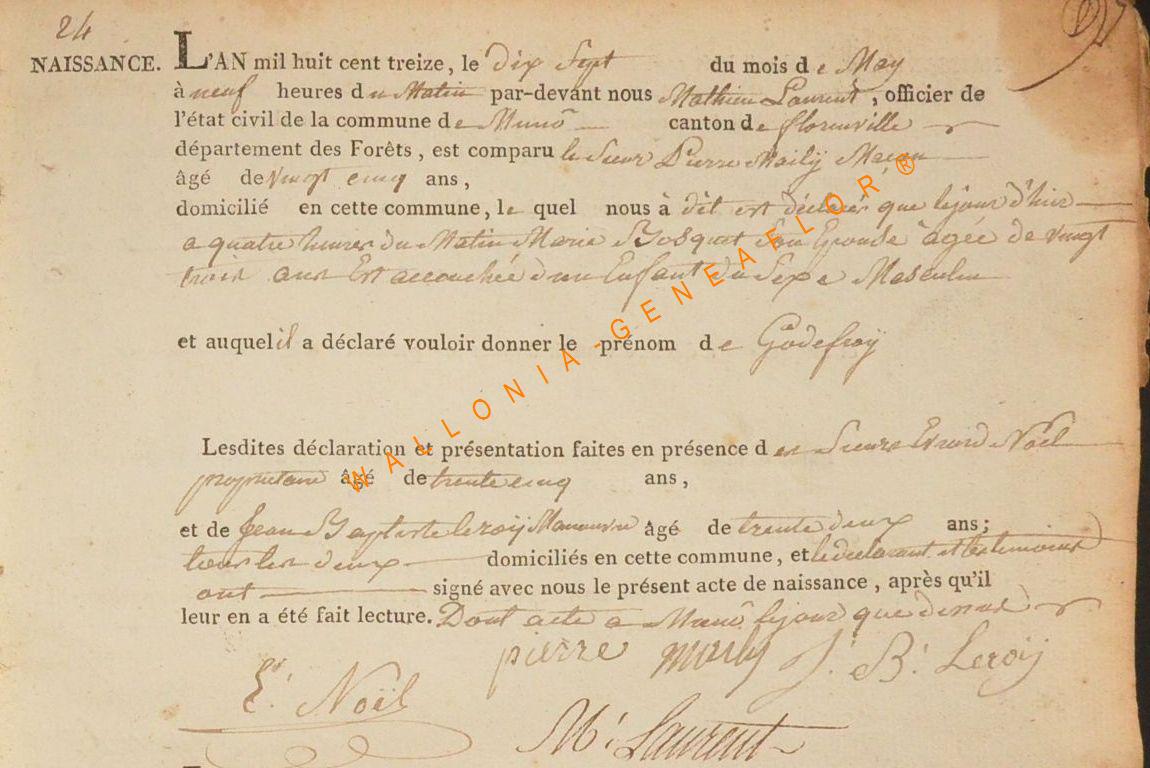 24
NAISSANCE. L'AN mil huit cent treize, le Dix Sept du mois de May
à neuf heures du Matin par-devant nous Mathieu Laurent, officier de
l'état civil de la commune de Munõ canton de florenville
département des Forêts, est comparu le Sieur Pierre Maily Maçon
âgé de vingt cinq ans,
domicilié en cette commune, le quel nous à dit est déclaré que lejour d'hier
a quatre heures du Matin Marie Bosquet Son Epouse agée de vingt
trois ans Est accouchée d'un Enfant du Sexe Masculin
et auquel il a déclaré vouloir donner le prénom de Godefroy
Lesdites déclaration et présentation faites en présence des Sieurs Noël
propriétaire âgé de trente cinq ans,
et de Jean Baptiste leroij Manœuvre âgé de trente deux ans;
tous les deux domiciliés en cette commune, et le déclarant et les temoins
ont signé avec nous le présent acte de naissance, après qu'il
leur en a été fait lecture. Dont acte a Munõ lejour que dessus
pierre maily J. B. Leroij
E. Noël
M. Laurent
WALLONIA-GENEAFLOR®